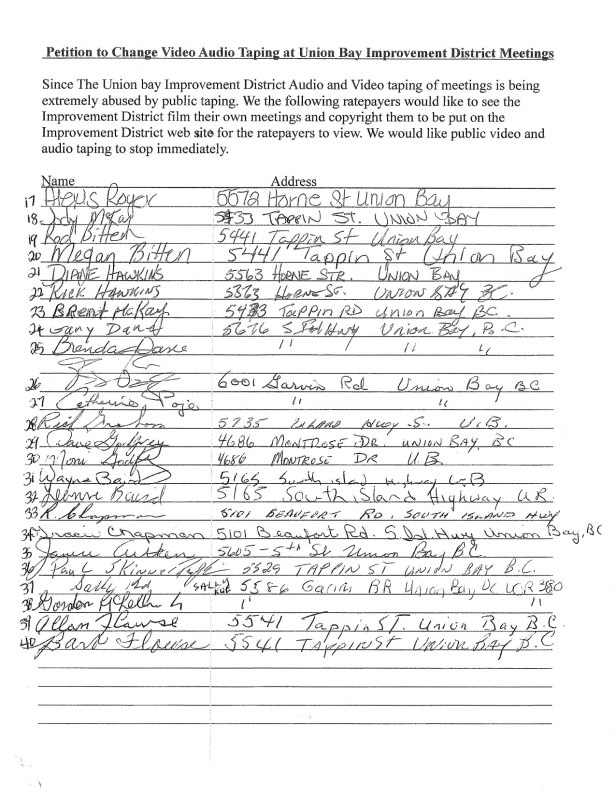 Petition to Change Video Audio Taping at Union Bay Improvement District Meetings
Since The Union bay Improvement District Audio and Video taping of meetings is being
extremely abused by public taping. We the following ratepayers would like to see the
Improvement District film their own meetings and copyright them to be put on the
Improvement District web site for the ratepayers to view. We would like public video and
audio taping to stop immediately.
Name Address
17 Alexis Royer 5572 Horne St Union Bay
18 Jody McKay 5433 TAPPIN ST. UNION BAY
19 Rod Bitten 5441 Tappin St Union Bay
20 Megan Bitten 5441 Tappin St Union Bay
21 DIANE HAWKINS 5563 HORNE STR. UNION BAY
22 RICK HAWKINS 5563 HORNE ST. UNION BAY BC.
23 BRENT McKAY 5433 TAPPIN RD UNION BAY BC.
24 5676 S Union Bay, B.C.
25 Brenda " " "
26 6001 Garvin Rd Union Bay BC
27 Catherine " "
28 Rick Graham 5735 ISLAND HWY S. U.B.
29 Godfrey 4686 MONTROSE DR UNION BAY, BC
30 4686 MONTROSE DR U.B.
31 Wayne Baird 5165 South island Highway U.B
32 Baird 5165 South Island Highway U.B.
33 R. Chapman 5101 BEAUFORT RD, SOUTH ISLAND HWY
34 Chapman 5101 Beaufort Rd. S. Isl Hwy Union Bay, BC
35 Aitken 5605-5th St. Union Bay BC.
36 Paul Skinner 5529 TAPPIN ST UNION BAY B.C.
37 Sally SALLY 5586 Union Bay BC
38 Gordon " "
39 Allan Flawse 5541 Tappin ST. Union Bay B.C.
40 Barb Flawse 5541 TAPPIN ST UNION BAY B.C